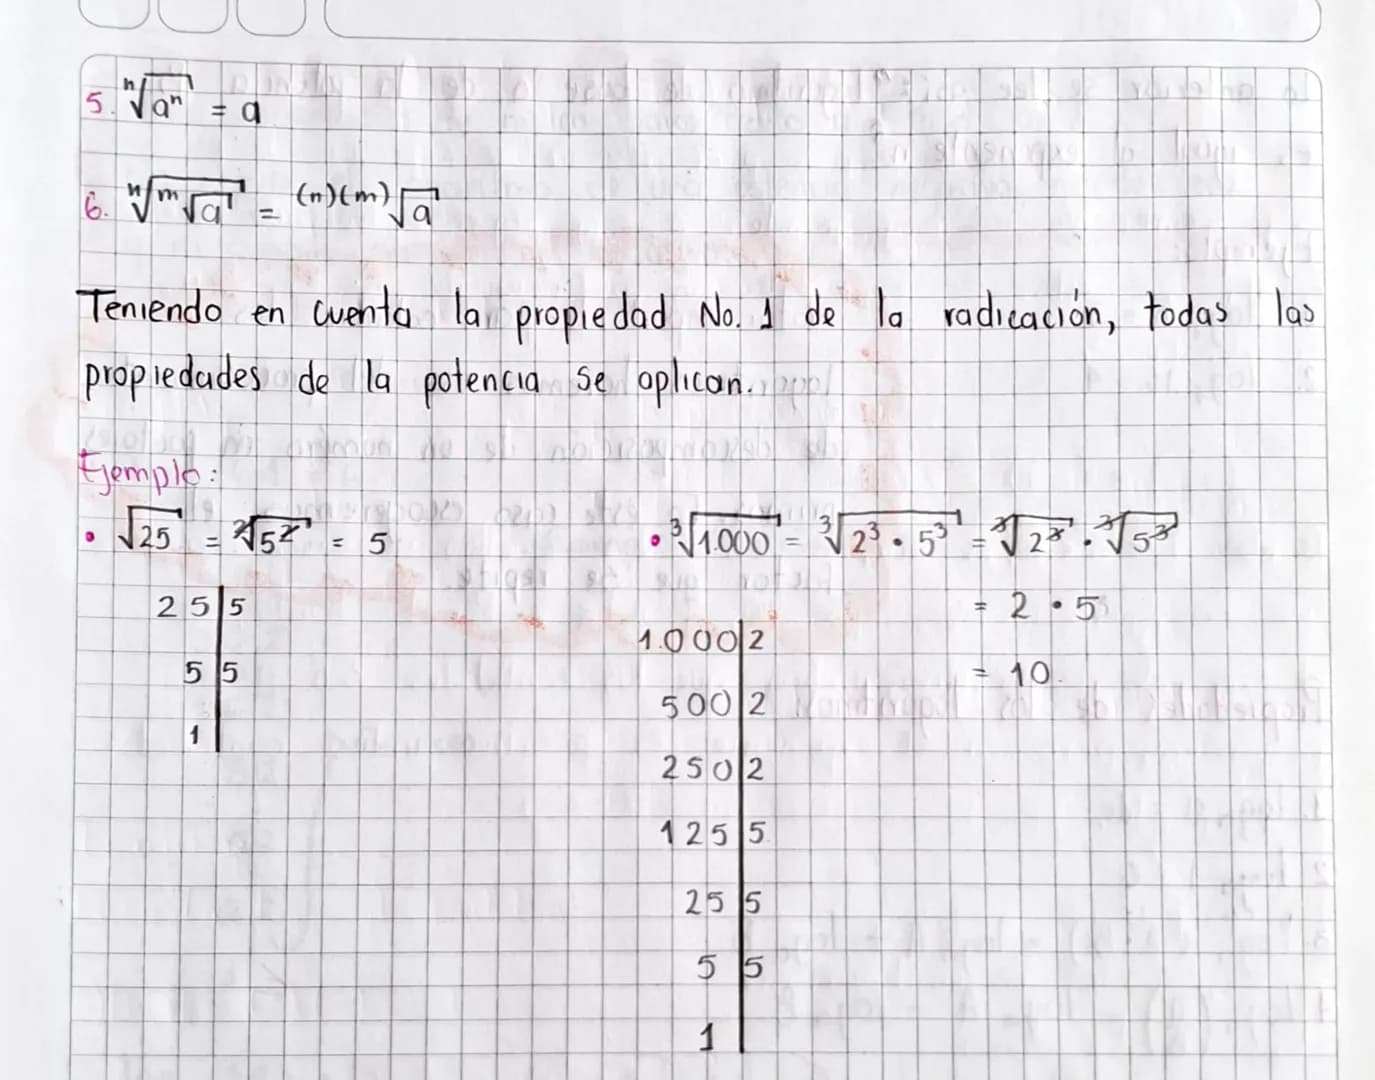 5. ⁿ√aⁿ = a
6. ⁿ√ᵐ√a = ⁽ⁿ⁾⁽ᵐ⁾√a
Teniendo en cuenta la propiedad No. 1 de la radicación, todas las
propiedades de la potencia se aplican.
Ejemplo:
• √25 = ²√5² = 5
25|5
5|5
1|
• ³√1.000 = ³√2³ • 5³ = ³√2³ • ³√5³
= 2 • 5
= 10.
1.000|2
500|2
250|2
125|5
25|5
5|5
1|